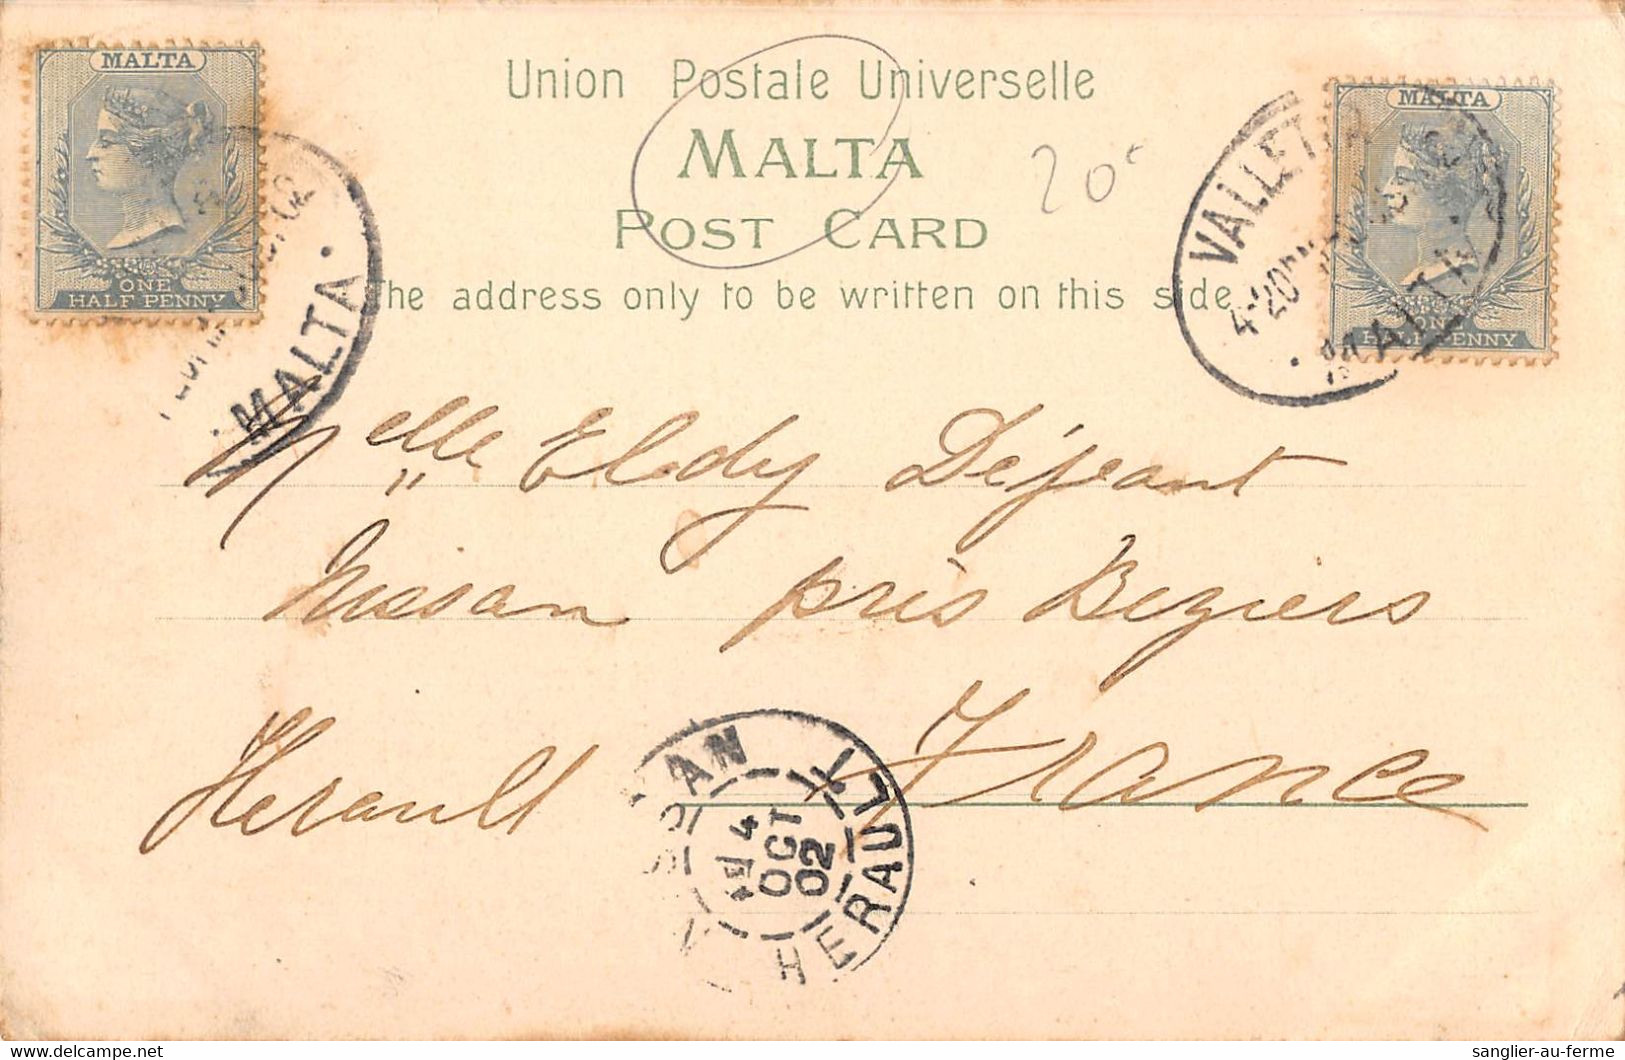 MALTA
ONE
HALF PENNY
MALTA
Union Postale Universelle
MALTA
POST CARD
The address only to be written on this side
20
VALLETTA
MALTA
MALTA
ONE
HALF PENNY
Melle Elody Déjeant
Nissan près Beziers
Herault France
4
OCT
02
HERAULT
sanglier-au-ferme